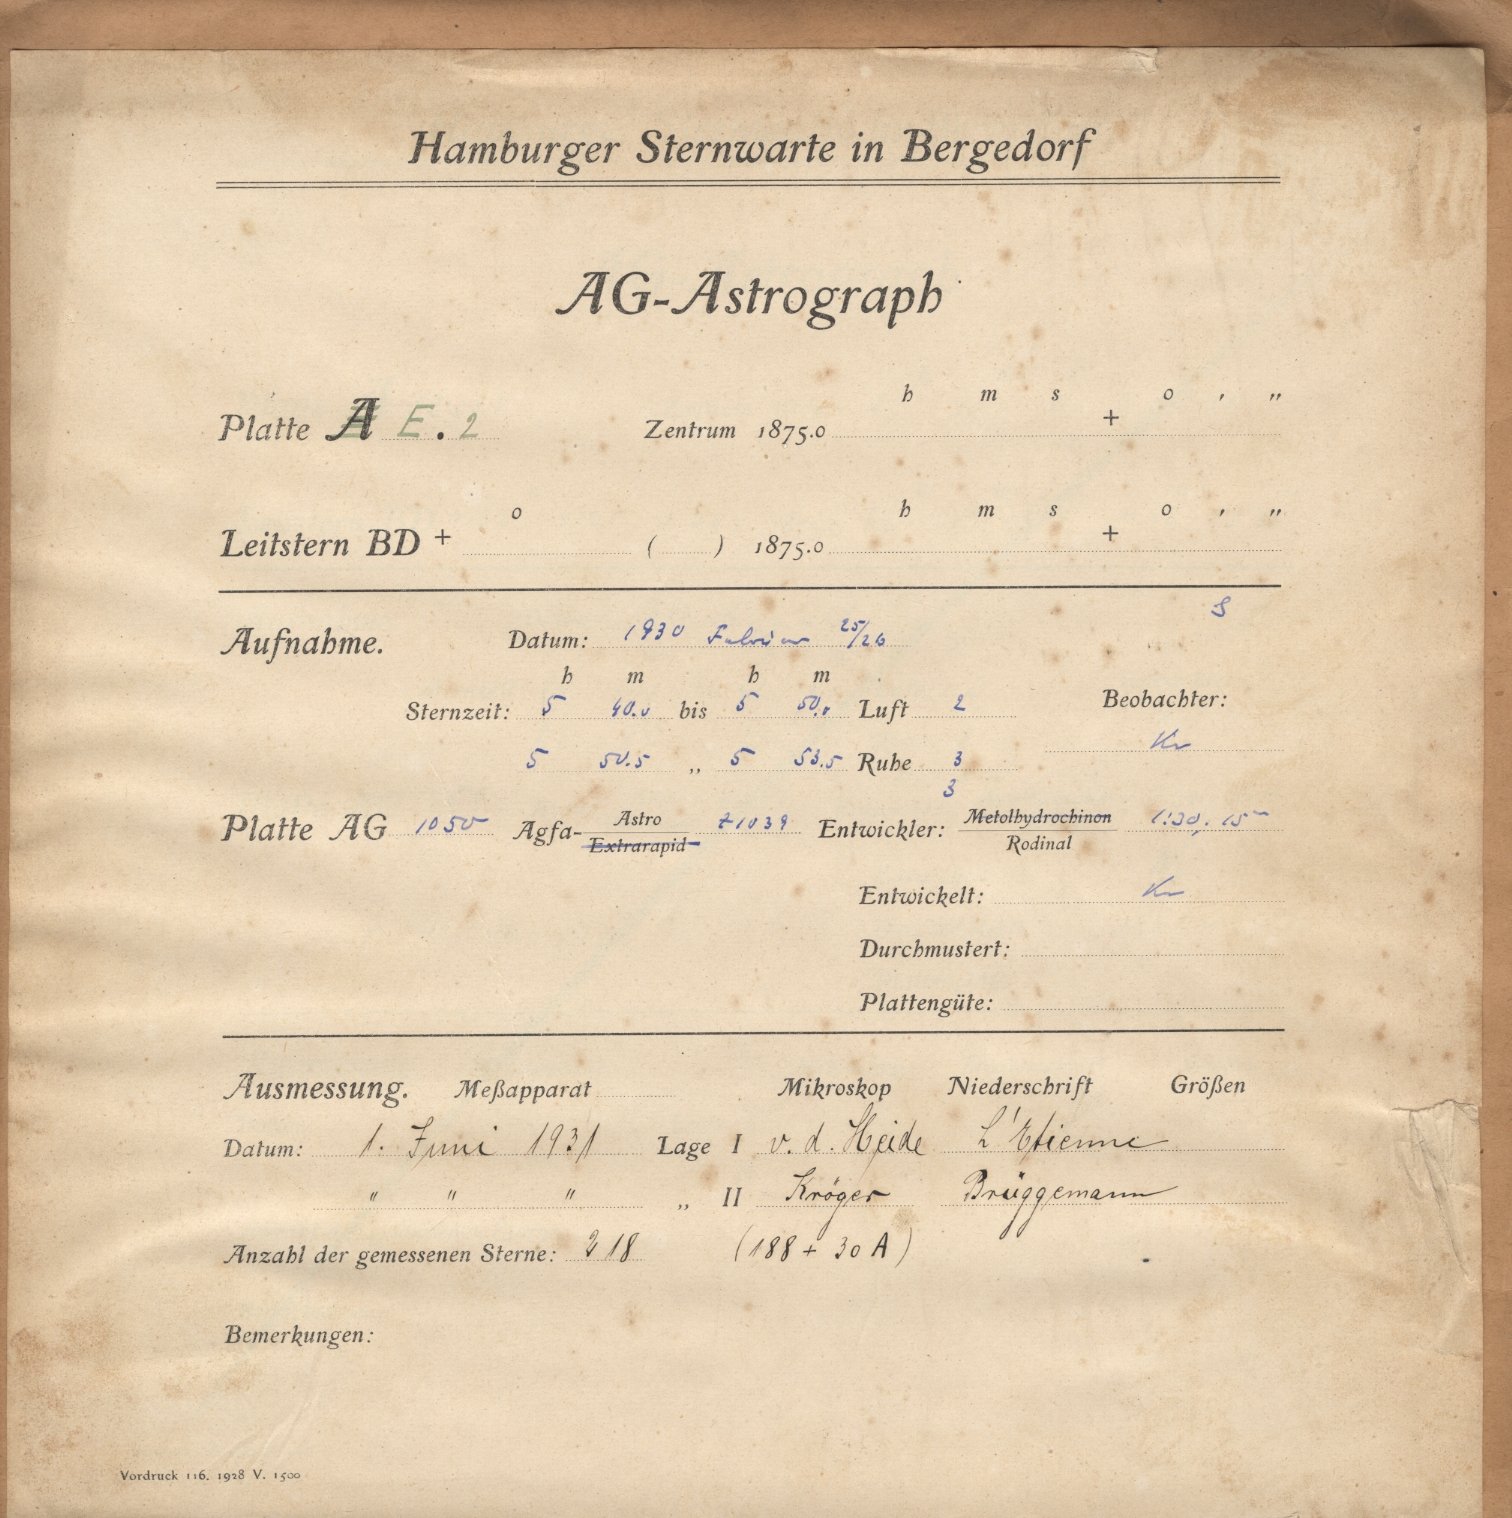 Hamburger Sternwarte in Bergedorf
AG-Astrograph
h m s o ′ ″
Platte A E. 2 Zentrum 1875.0 +
o h m s o ′ ″
Leitstern BD + ( ) 1875.0 +
Aufnahme. Datum: 1930 Februar 25/26
h m h m
Sternzeit: 5 40.0 bis 5 50.0 Luft 2 Beobachter:
5 50.5 „ 5 53.5 Ruhe 3 Kr
3
Platte AG 1050 Agfa- Astro Extrarapid Z1039 Entwickler: Metolhydrochinon Rodinal 1:30, 15
Entwickelt: Kr
Durchmustert:
Plattengüte:
Ausmessung. Meßapparat Mikroskop Niederschrift Größen
Datum: 1. Juni 1931 Lage I v. d. Heide L'Etienne
" " " „ II Kröger Brüggemann
Anzahl der gemessenen Sterne: 218 (188 + 30 A)
Bemerkungen:
Vordruck 116. 1928 V. 1500